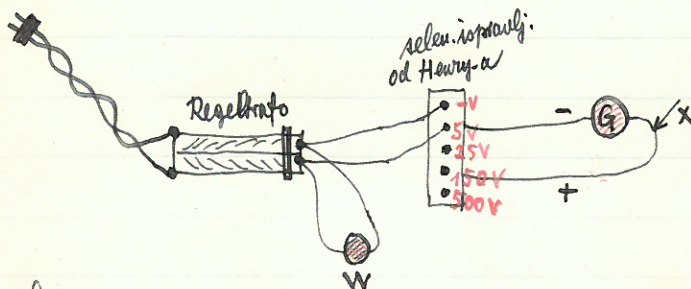 selen. ispravlj.
od Henry-a
Regeltrafo
-V
5V
25V
150V
500V
-
G
X
+
W